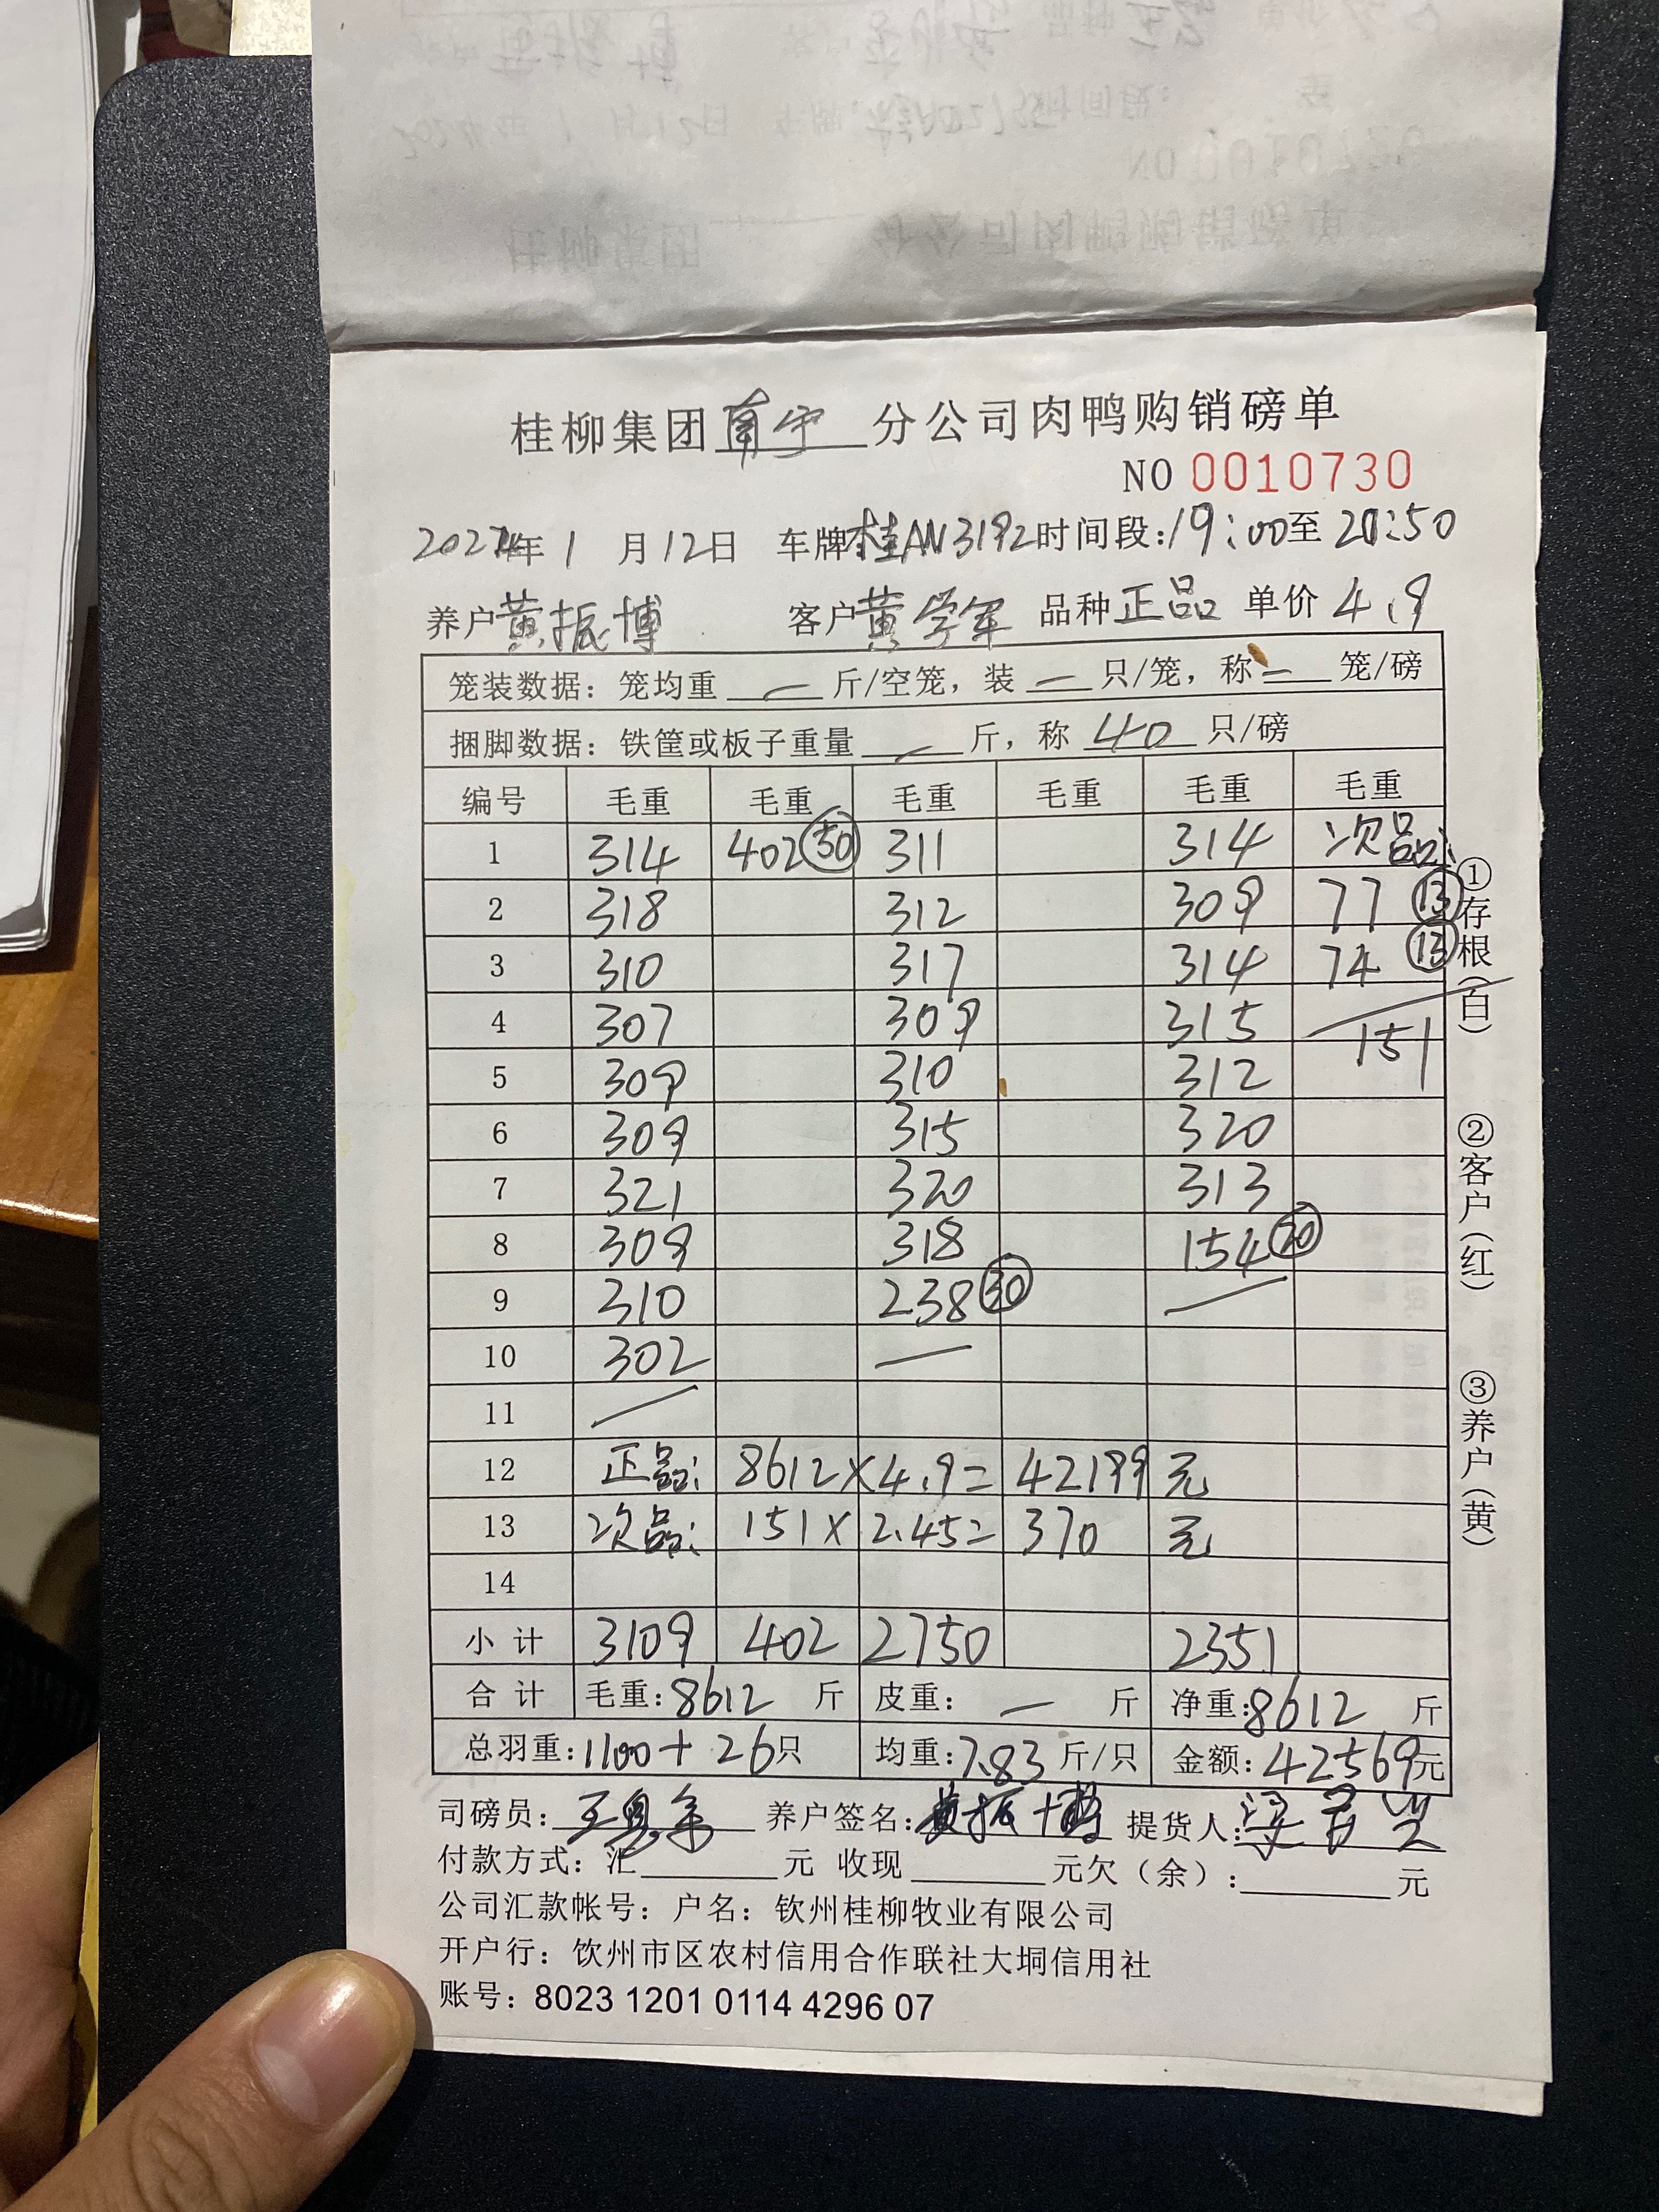 桂柳集团南宁分公司肉鸭购销磅单
NO 0010730
2024年1月12日 车牌桂AN3192时间段:19:00至20:50
养户黄振博 客户黄学军 品种正品 单价4.9
笼装数据：笼均重 — 斤/空笼，装 — 只/笼，称 — 笼/磅
捆脚数据：铁筐或板子重量 — 斤，称 40 只/磅
编号 毛重 毛重 毛重 毛重 毛重 毛重
1 314 402 50 311 314 次品:
2 318 312 309 77 13
3 310 317 314 74 13
4 307 309 315 151
5 309 310 312
6 309 315 320
7 321 320 313
8 309 318 154 20
9 310 238 30 —
10 302 —
11 —
12 正品: 8612×4.9= 42199 元
13 次品: 151× 2.45= 370 元
14
小计 3109 402 2750 2351
合计 毛重:8612 斤 皮重: — 斤 净重:8612 斤
总羽重:1100+26只 均重:7.83斤/只 金额:42569元
司磅员: 养户签名:黄振博 提货人:
付款方式：汇 元 收现 元欠（余）: 元
公司汇款帐号：户名：钦州桂柳牧业有限公司
开户行：饮州市区农村信用合作联社大垌信用社
账号：8023 1201 0114 4296 07
①存根（白） ②客户（红） ③养户（黄）